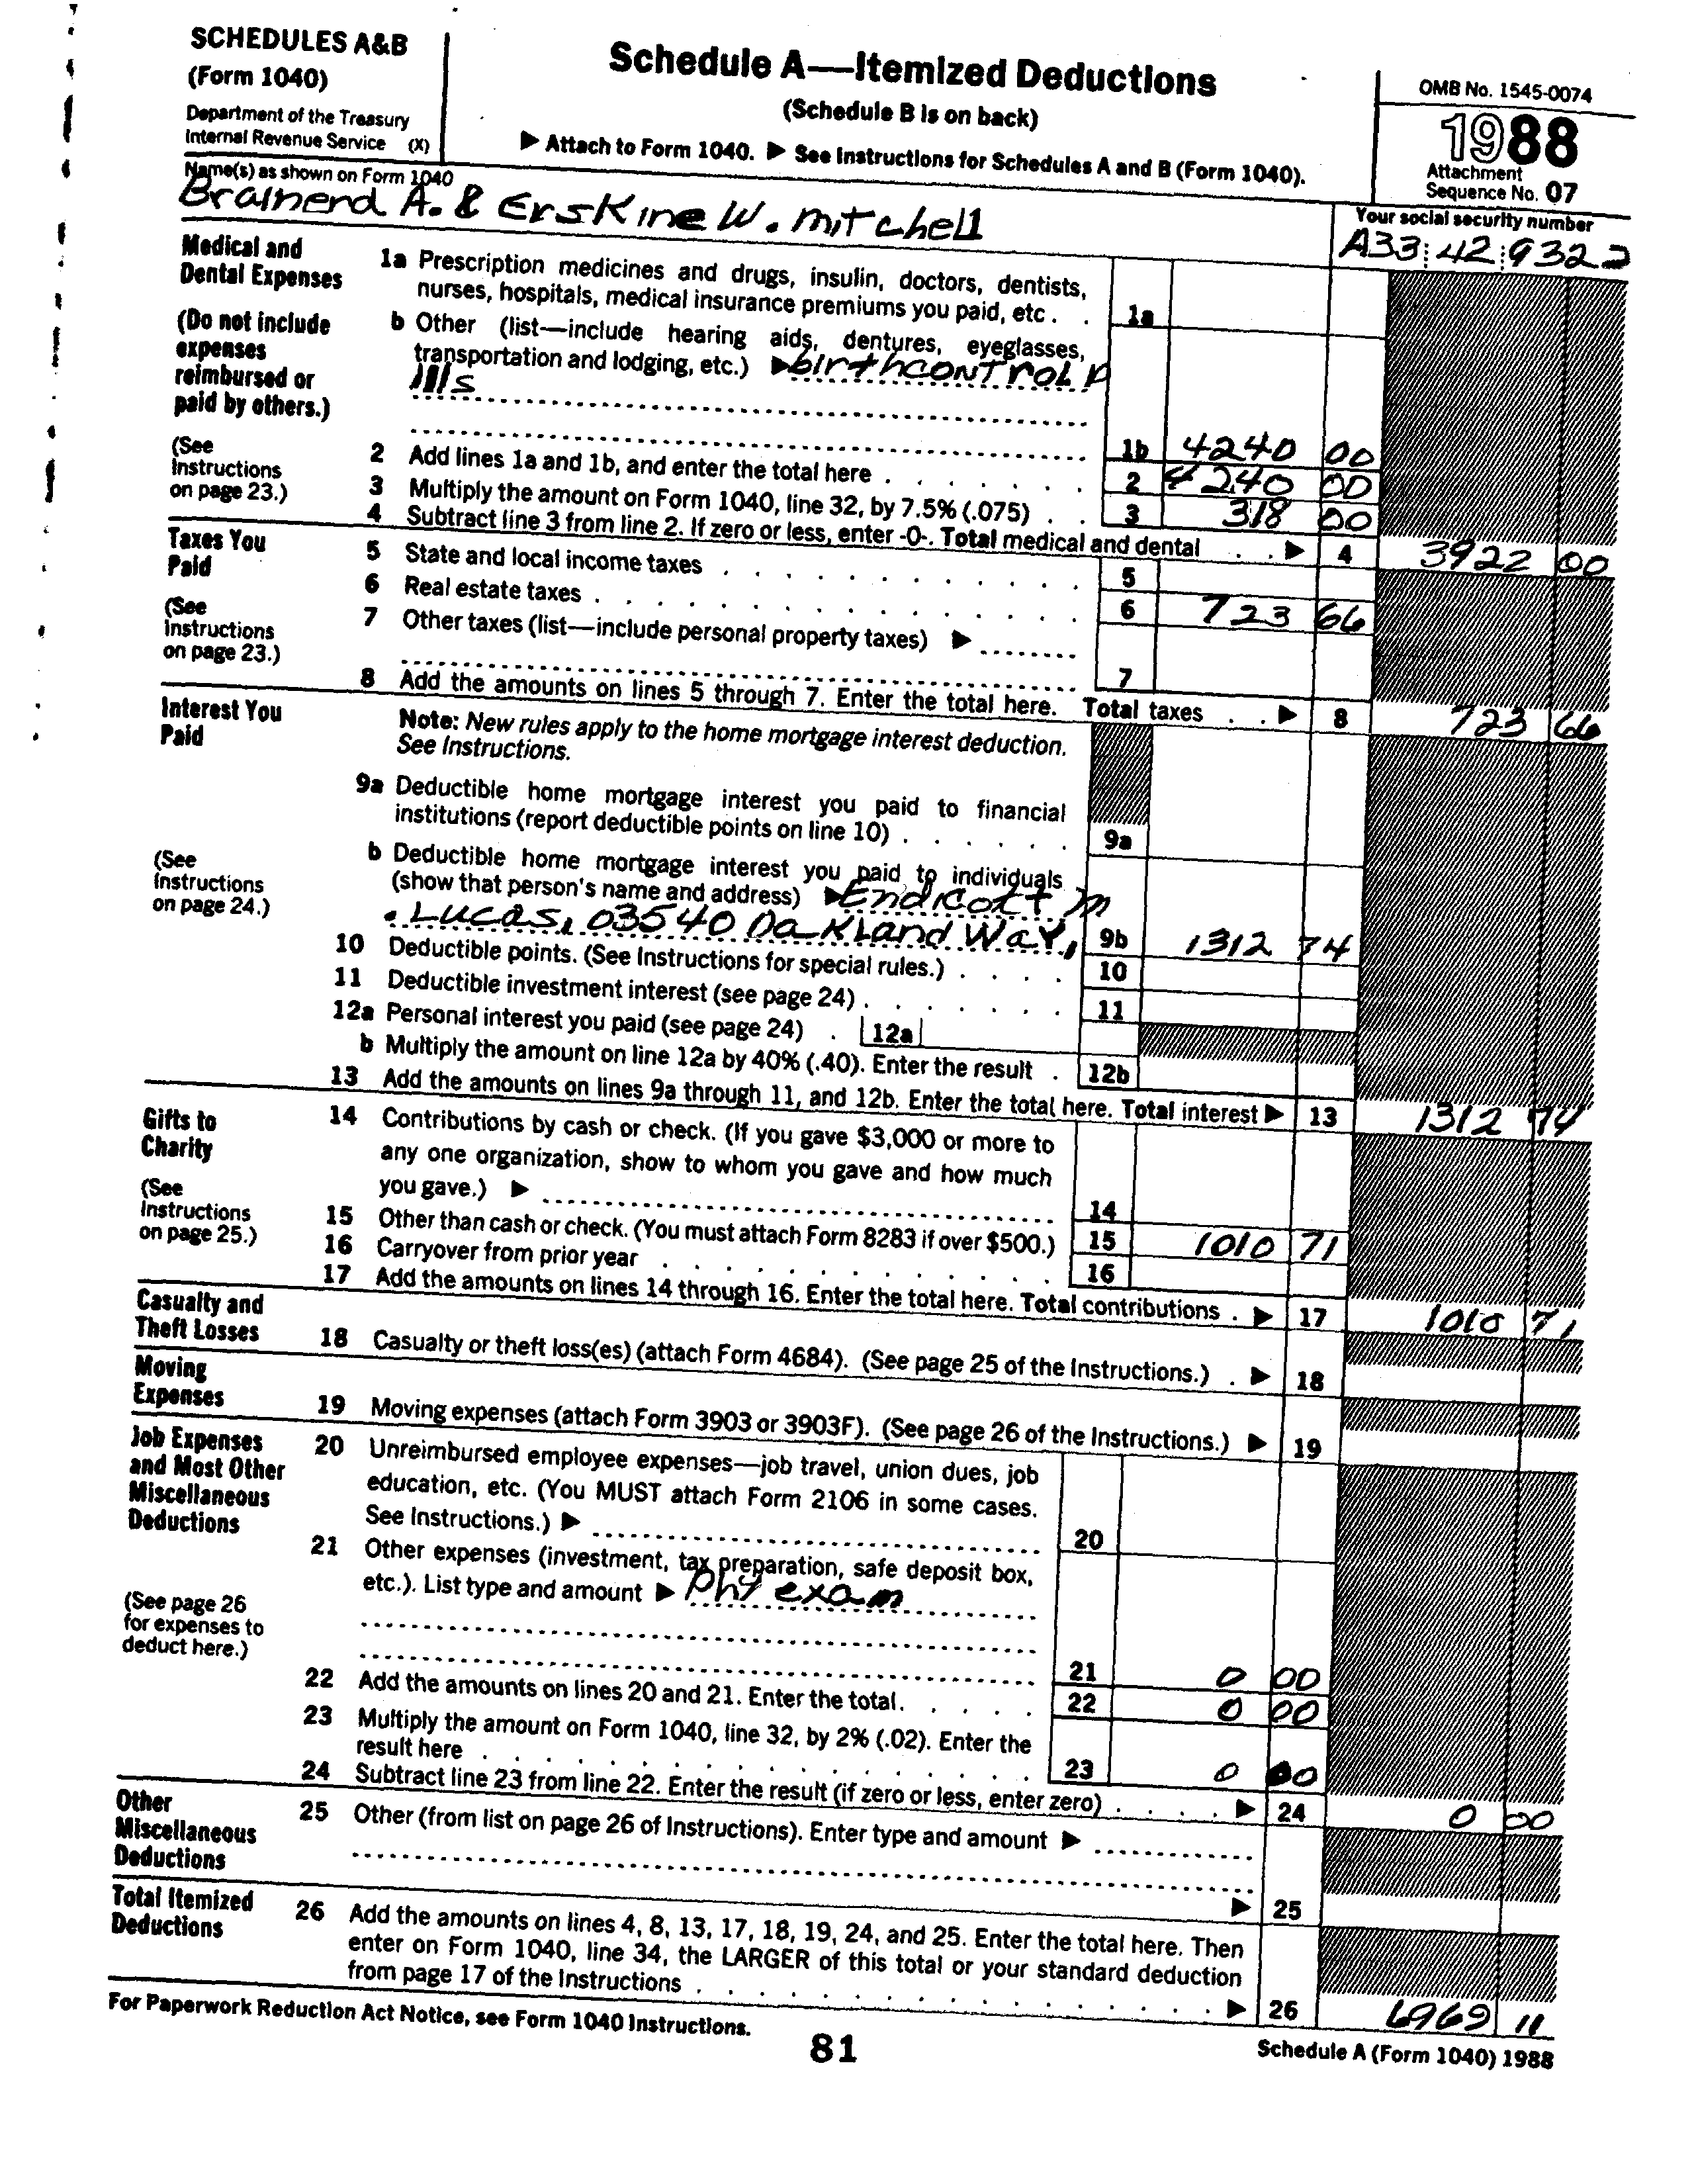 SCHEDULES A&B
(Form 1040)
Department of the Treasury
Internal Revenue Service (X)
Schedule A—Itemized Deductions
(Schedule B is on back)
▶ Attach to Form 1040. ▶ See Instructions for Schedules A and B (Form 1040).
OMB No. 1545-0074
1988
Attachment
Sequence No. 07
Name(s) as shown on Form 1040
Brainerd A. & Erskine W. mitchell
Your social security number
A33 42 9322
Medical and
Dental Expenses
(Do not include
expenses
reimbursed or
paid by others.)
(See
Instructions
on page 23.)
1a Prescription medicines and drugs, insulin, doctors, dentists,
nurses, hospitals, medical insurance premiums you paid, etc . . 1a
b Other (list—include hearing aids, dentures, eyeglasses,
transportation and lodging, etc.) ▶ birthcontrol p
ills
1b 4240 00
2 Add lines 1a and 1b, and enter the total here . . . . . . . 2 4240 00
3 Multiply the amount on Form 1040, line 32, by 7.5% (.075) . . 3 318 00
4 Subtract line 3 from line 2. If zero or less, enter -0-. Total medical and dental . . ▶ 4 3922 00
Taxes You
Paid
(See
Instructions
on page 23.)
5 State and local income taxes . . . . . . . . . . . . 5
6 Real estate taxes . . . . . . . . . . . . . . . . 6 723 66
7 Other taxes (list—include personal property taxes) ▶
7
8 Add the amounts on lines 5 through 7. Enter the total here. Total taxes . . ▶ 8 723 66
Interest You
Paid
(See
Instructions
on page 24.)
Note: New rules apply to the home mortgage interest deduction.
See Instructions.
9a Deductible home mortgage interest you paid to financial
institutions (report deductible points on line 10) . . . . . . 9a
b Deductible home mortgage interest you paid to individuals
(show that person's name and address) ▶ Endicott m
. Lucas, 03540 Oakland Way, 9b 1312 74
10 Deductible points. (See Instructions for special rules.) . . . . 10
11 Deductible investment interest (see page 24) . . . . . . . 11
12a Personal interest you paid (see page 24) . 12a
b Multiply the amount on line 12a by 40% (.40). Enter the result . 12b
13 Add the amounts on lines 9a through 11, and 12b. Enter the total here. Total interest ▶ 13 1312 74
Gifts to
Charity
(See
Instructions
on page 25.)
14 Contributions by cash or check. (If you gave $3,000 or more to
any one organization, show to whom you gave and how much
you gave.) ▶
14
15 Other than cash or check. (You must attach Form 8283 if over $500.) 15 1010 71
16 Carryover from prior year . . . . . . . . . . . . . 16
17 Add the amounts on lines 14 through 16. Enter the total here. Total contributions . ▶ 17 1010 71
Casualty and
Theft Losses
18 Casualty or theft loss(es) (attach Form 4684). (See page 25 of the Instructions.) . ▶ 18
Moving
Expenses
19 Moving expenses (attach Form 3903 or 3903F). (See page 26 of the Instructions.) ▶ 19
Job Expenses
and Most Other
Miscellaneous
Deductions
(See page 26
for expenses to
deduct here.)
20 Unreimbursed employee expenses—job travel, union dues, job
education, etc. (You MUST attach Form 2106 in some cases.
See Instructions.) ▶
20
21 Other expenses (investment, tax preparation, safe deposit box,
etc.). List type and amount ▶ phy exam
21 0 00
22 Add the amounts on lines 20 and 21. Enter the total. . . . . . 22 0 00
23 Multiply the amount on Form 1040, line 32, by 2% (.02). Enter the
result here . . . . . . . . . . . . . . . . . . 23 0 00
24 Subtract line 23 from line 22. Enter the result (if zero or less, enter zero) . . . . . ▶ 24 0 00
Other
Miscellaneous
Deductions
25 Other (from list on page 26 of Instructions). Enter type and amount ▶
▶ 25
Total Itemized
Deductions
26 Add the amounts on lines 4, 8, 13, 17, 18, 19, 24, and 25. Enter the total here. Then
enter on Form 1040, line 34, the LARGER of this total or your standard deduction
from page 17 of the Instructions . . . . . . . . . . . . . . . . . . . ▶ 26 6969 11
For Paperwork Reduction Act Notice, see Form 1040 Instructions.
81
Schedule A (Form 1040) 1988